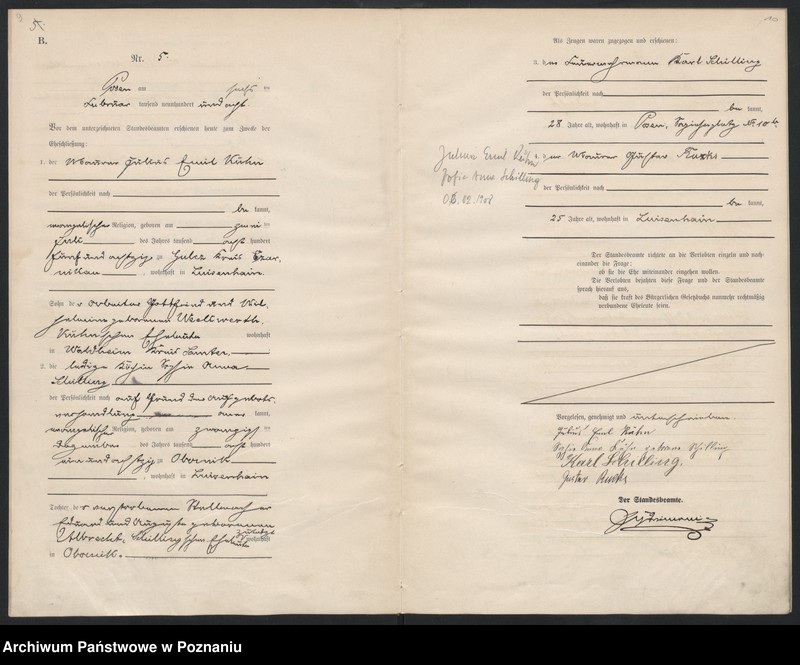 9
5.
B.
Nr. 5.
Posen am sechs ten
Februar tausend neunhundert und acht.
Vor dem unterzeichneten Standesbeamten erschienen heute zum Zwecke der
Eheschließung:
1. der Maurer Julius Emil Kühn
der Persönlichkeit nach
be kannt,
evangelischer Religion, geboren am zwei
des Jahres tausend acht hundert
fünf und achtzig zu Hulcz Kreis Czar-
nikau, wohnhaft in Luisenhain
Sohn der Arbeiter Gottfried und Wil-
helmine geborenen
Kühnschen Eheleute wohnhaft
in Waldheim Kreis Samter.
2. die ledige Köchin Sophie Anna
Schilling
der Persönlichkeit nach auf Grund des Aufgebots-
verhandlung aner kannt,
evangelischer Religion, geboren am zwanzigsten
Dezember des Jahres tausend acht hundert
ein und achtzig zu Obornik
, wohnhaft in Luisenhain
Tochter der verstorbenen Stellmacher
Eduard und Auguste geborenen
Albrecht, Schillingschen Eheleute zuletzt wohnhaft
in Obornik.
10
Als Zeugen waren zugezogen und erschienen:
3. der Feuerwehrmann Karl Schilling
der Persönlichkeit nach
be kannt,
28 Jahre alt, wohnhaft in Posen, Sapiehaplatz № 10 b.
4. der Maurer Gustav Rucks
der Persönlichkeit nach
be kannt,
25 Jahre alt, wohnhaft in Luisenhain
Julius Emil Kühn
Sofia Anna Schilling
06.02.1908
Der Standesbeamte richtete an die Verlobten einzeln und nach-
einander die Frage:
ob sie die Ehe miteinander eingehen wollen.
Die Verlobten bejahten diese Frage und der Standesbeamte
sprach hierauf aus,
daß sie kraft des Bürgerlichen Gesetzbuchs nunmehr rechtmäßig
verbundene Eheleute seien.
Vorgelesen, genehmigt und unterschrieben.
Julius Emil Kühn
Sophie Anna Kühn geborene Schilling
Karl Schilling.
Gustav Rucks
Der Standesbeamte.
Archiwum Państwowe w Poznaniu